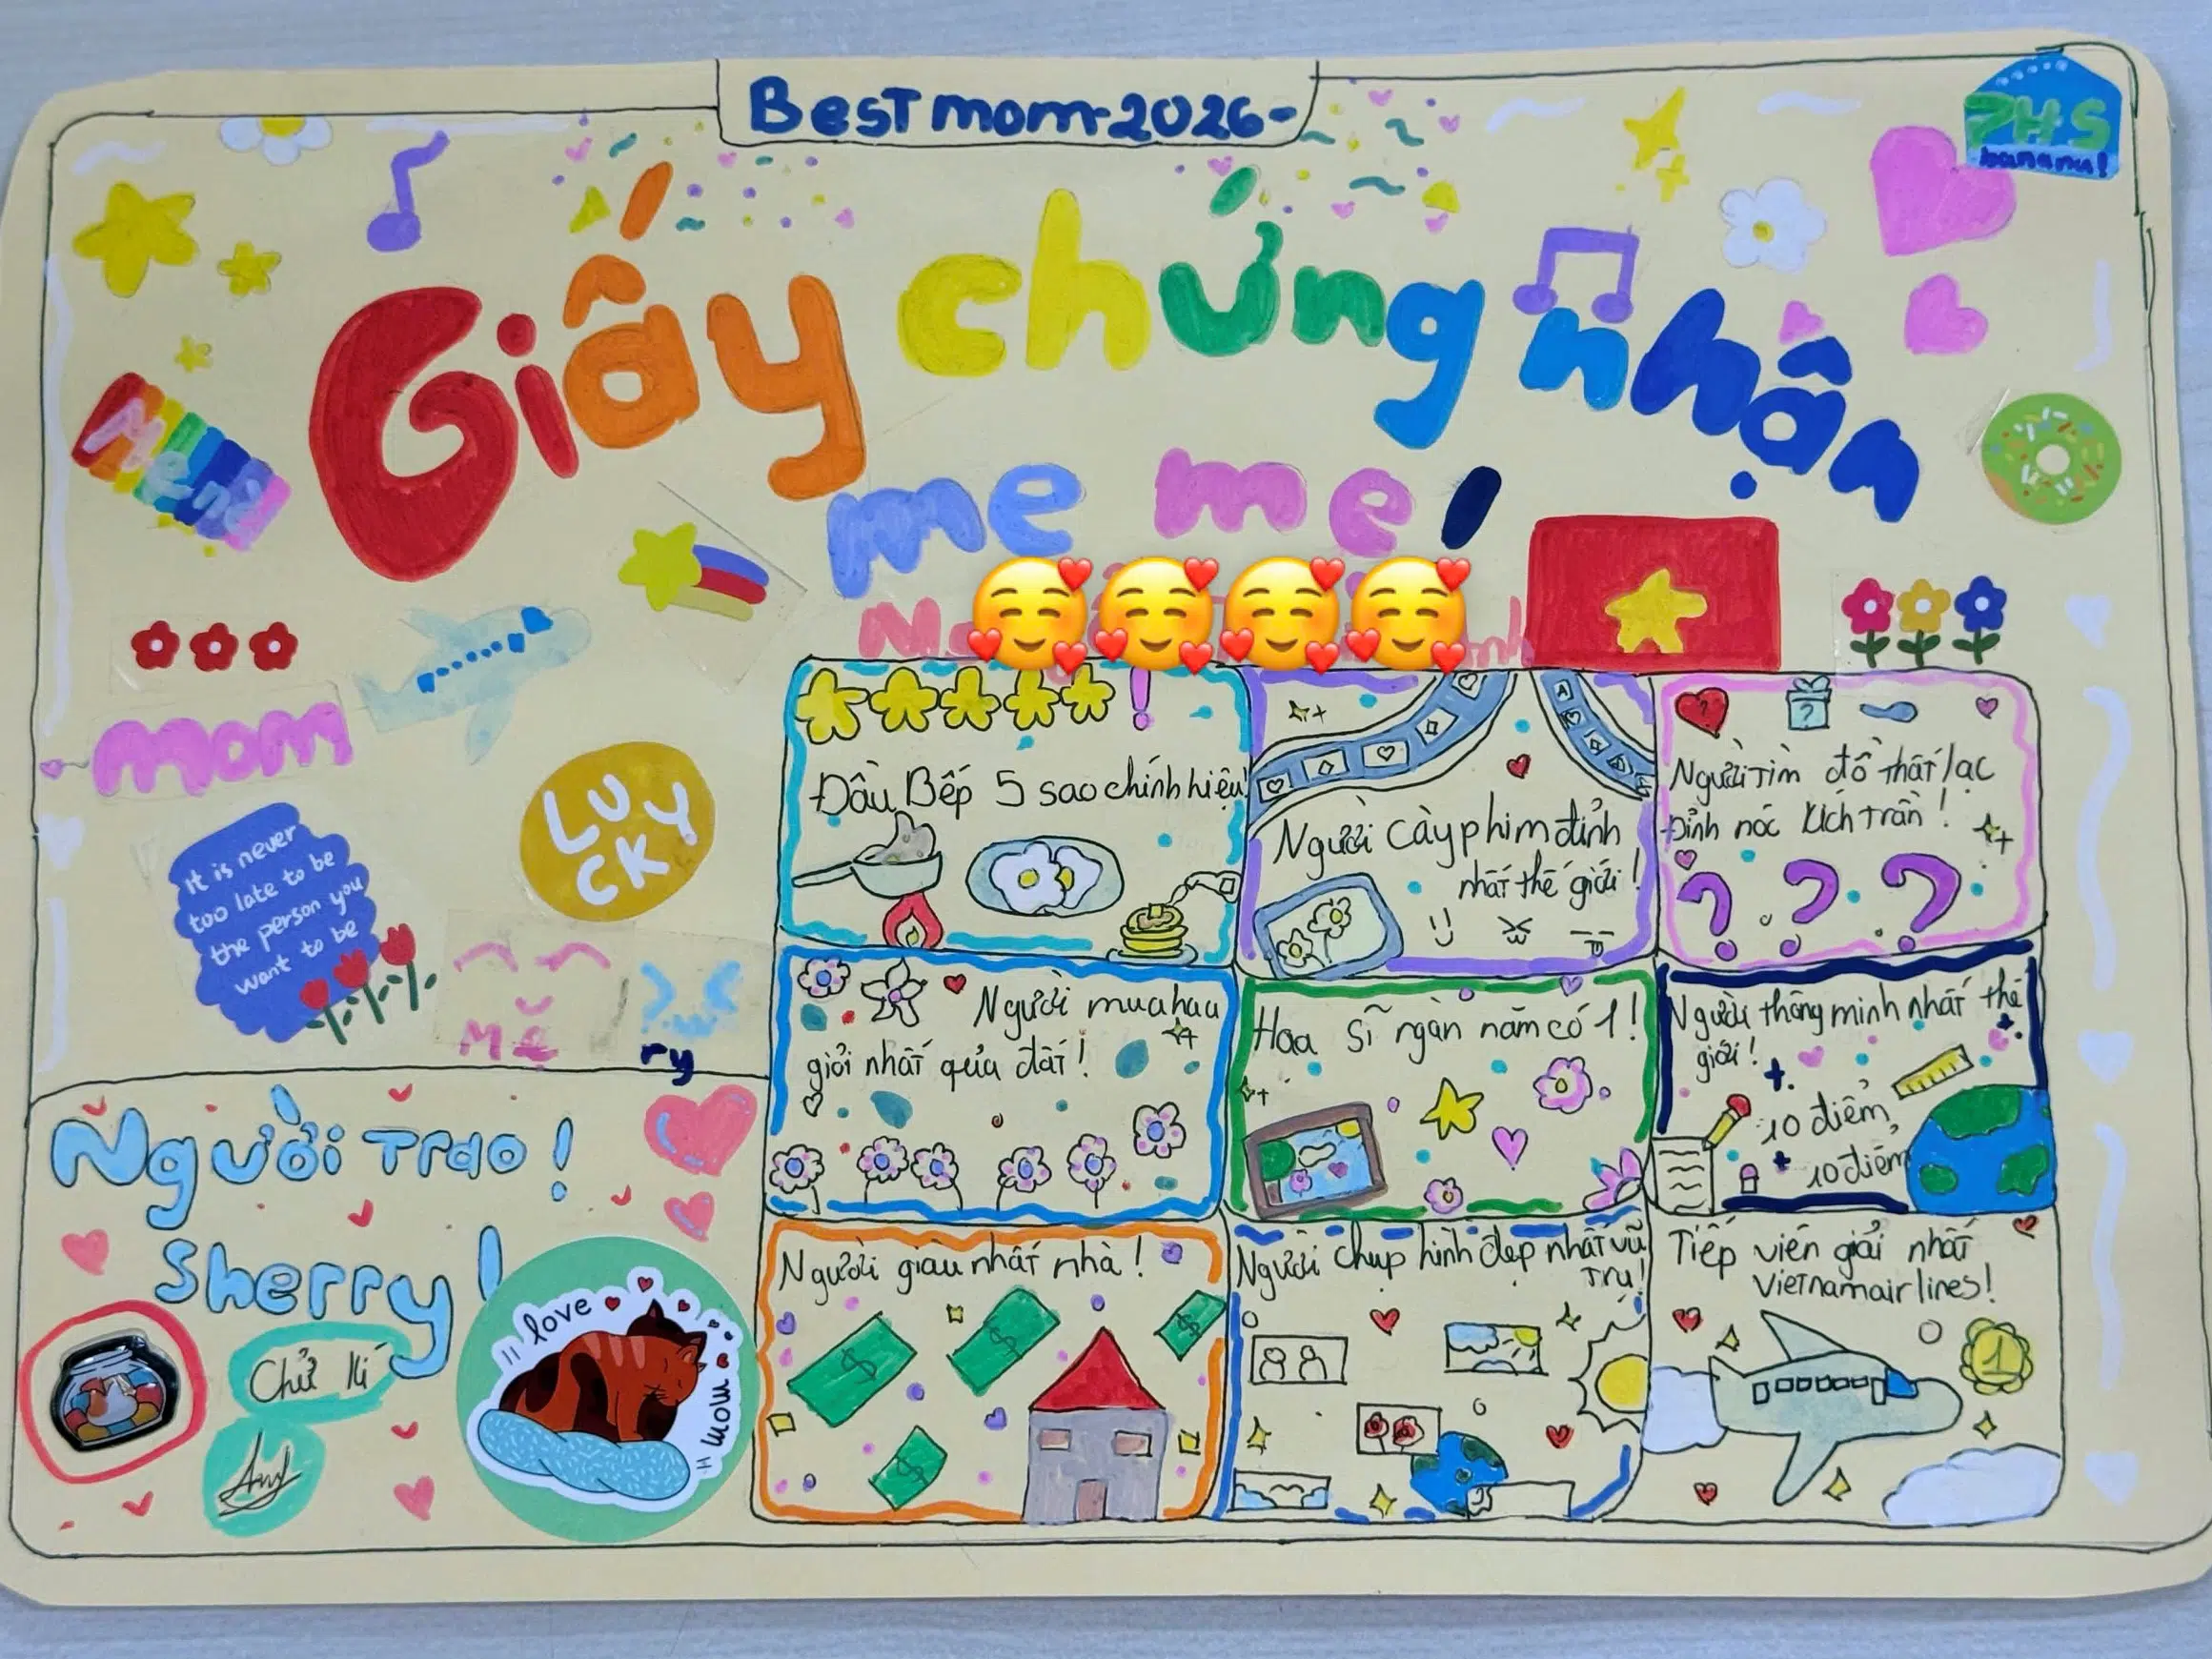 BesT mom-2026-
PHS
banana!
Giấy chứng nhận
me me!
mom
LUCKY
it is never
too late to be
the person you
want to be
Mẹ
ry
Người Trao!
Sherry!
Chữ kí
love
mom
Đầu Bếp 5 sao chính hiệu!
Người cày phim đỉnh
nhất thế giới!
Người tìm đồ thất lạc
Đỉnh nóc kịch trần!
???
Người mua hau
giỏi nhất quả đất!
Hoa sĩ ngàn năm có 1!
Người thông minh nhất thế
giới!
10 điểm
10 điểm
Người giàu nhất nhà!
Người chụp hình đẹp nhất vũ
trụ!
Tiếp viên giỏi nhất
Vietnamairlines!
1